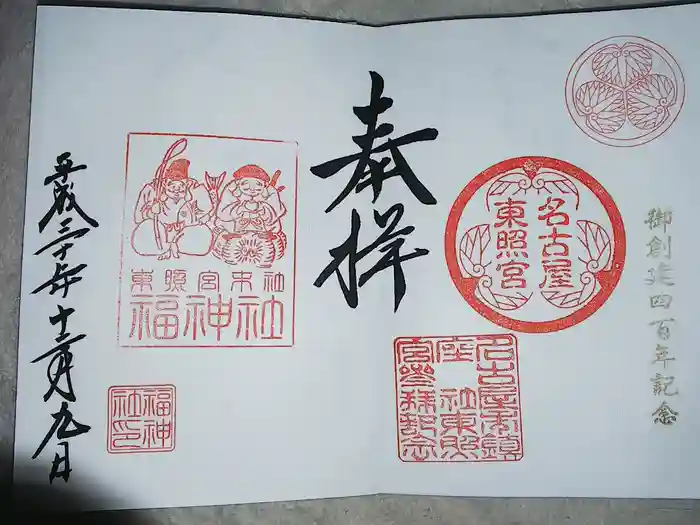 御創建四百年記念
名古屋
東照宮
名古屋市鎮
座 社東照
宮参拝記念
奉拝
東照宮末社
福神社
福神
社印
平成三十年十二月九日